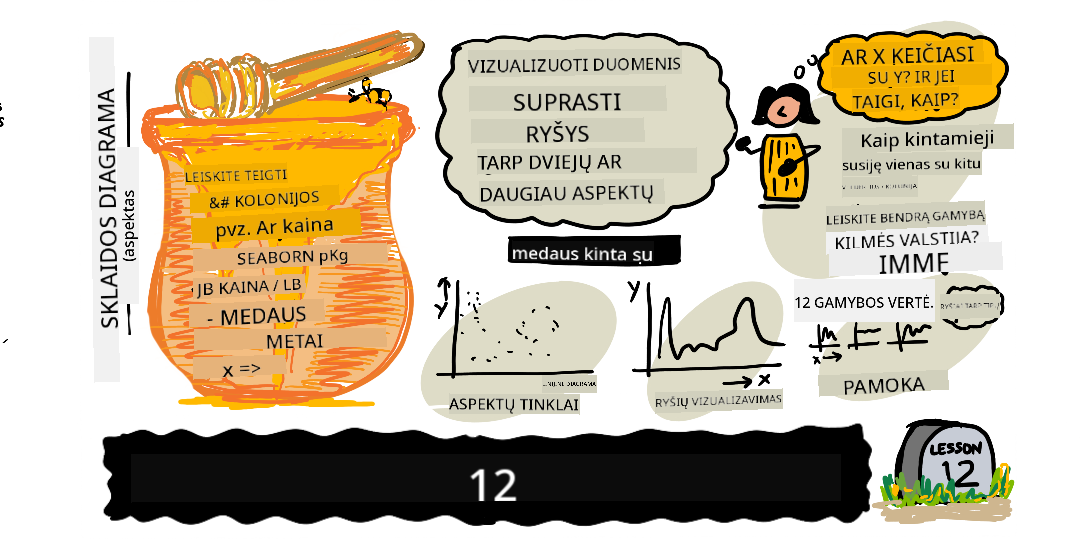 SKLAIDOS DIAGRAMA
(aspektas
LEISKITE TEIGTI
&# KOLONIJOS
pvz. Ar kaina
SEABORN pKg
JB KAINA / LB
- MEDAUS
METAI
x =>
VIZUALIZUOTI DUOMENIS
SUPRASTI
RYŠYS
TARP DVIEJŲ AR
DAUGIAU ASPEKTŲ
medaus kinta su
AR X KEIČIASI
SU Y? IR JEI
TAIGI, KAIP?
Kaip kintamieji
susiję vienas su kitu
LEISKITE BENDRĄ GAMYBĄ
KILMĖS VALSTIJA?
IMME
12 GAMYBOS VERTĖ.
y
DIAGRAMA
ASPEKTŲ TINKLAI
y
x
RYŠIŲ VIZUALIZAVIMAS
x
PAMOKA
12
LESSON
12